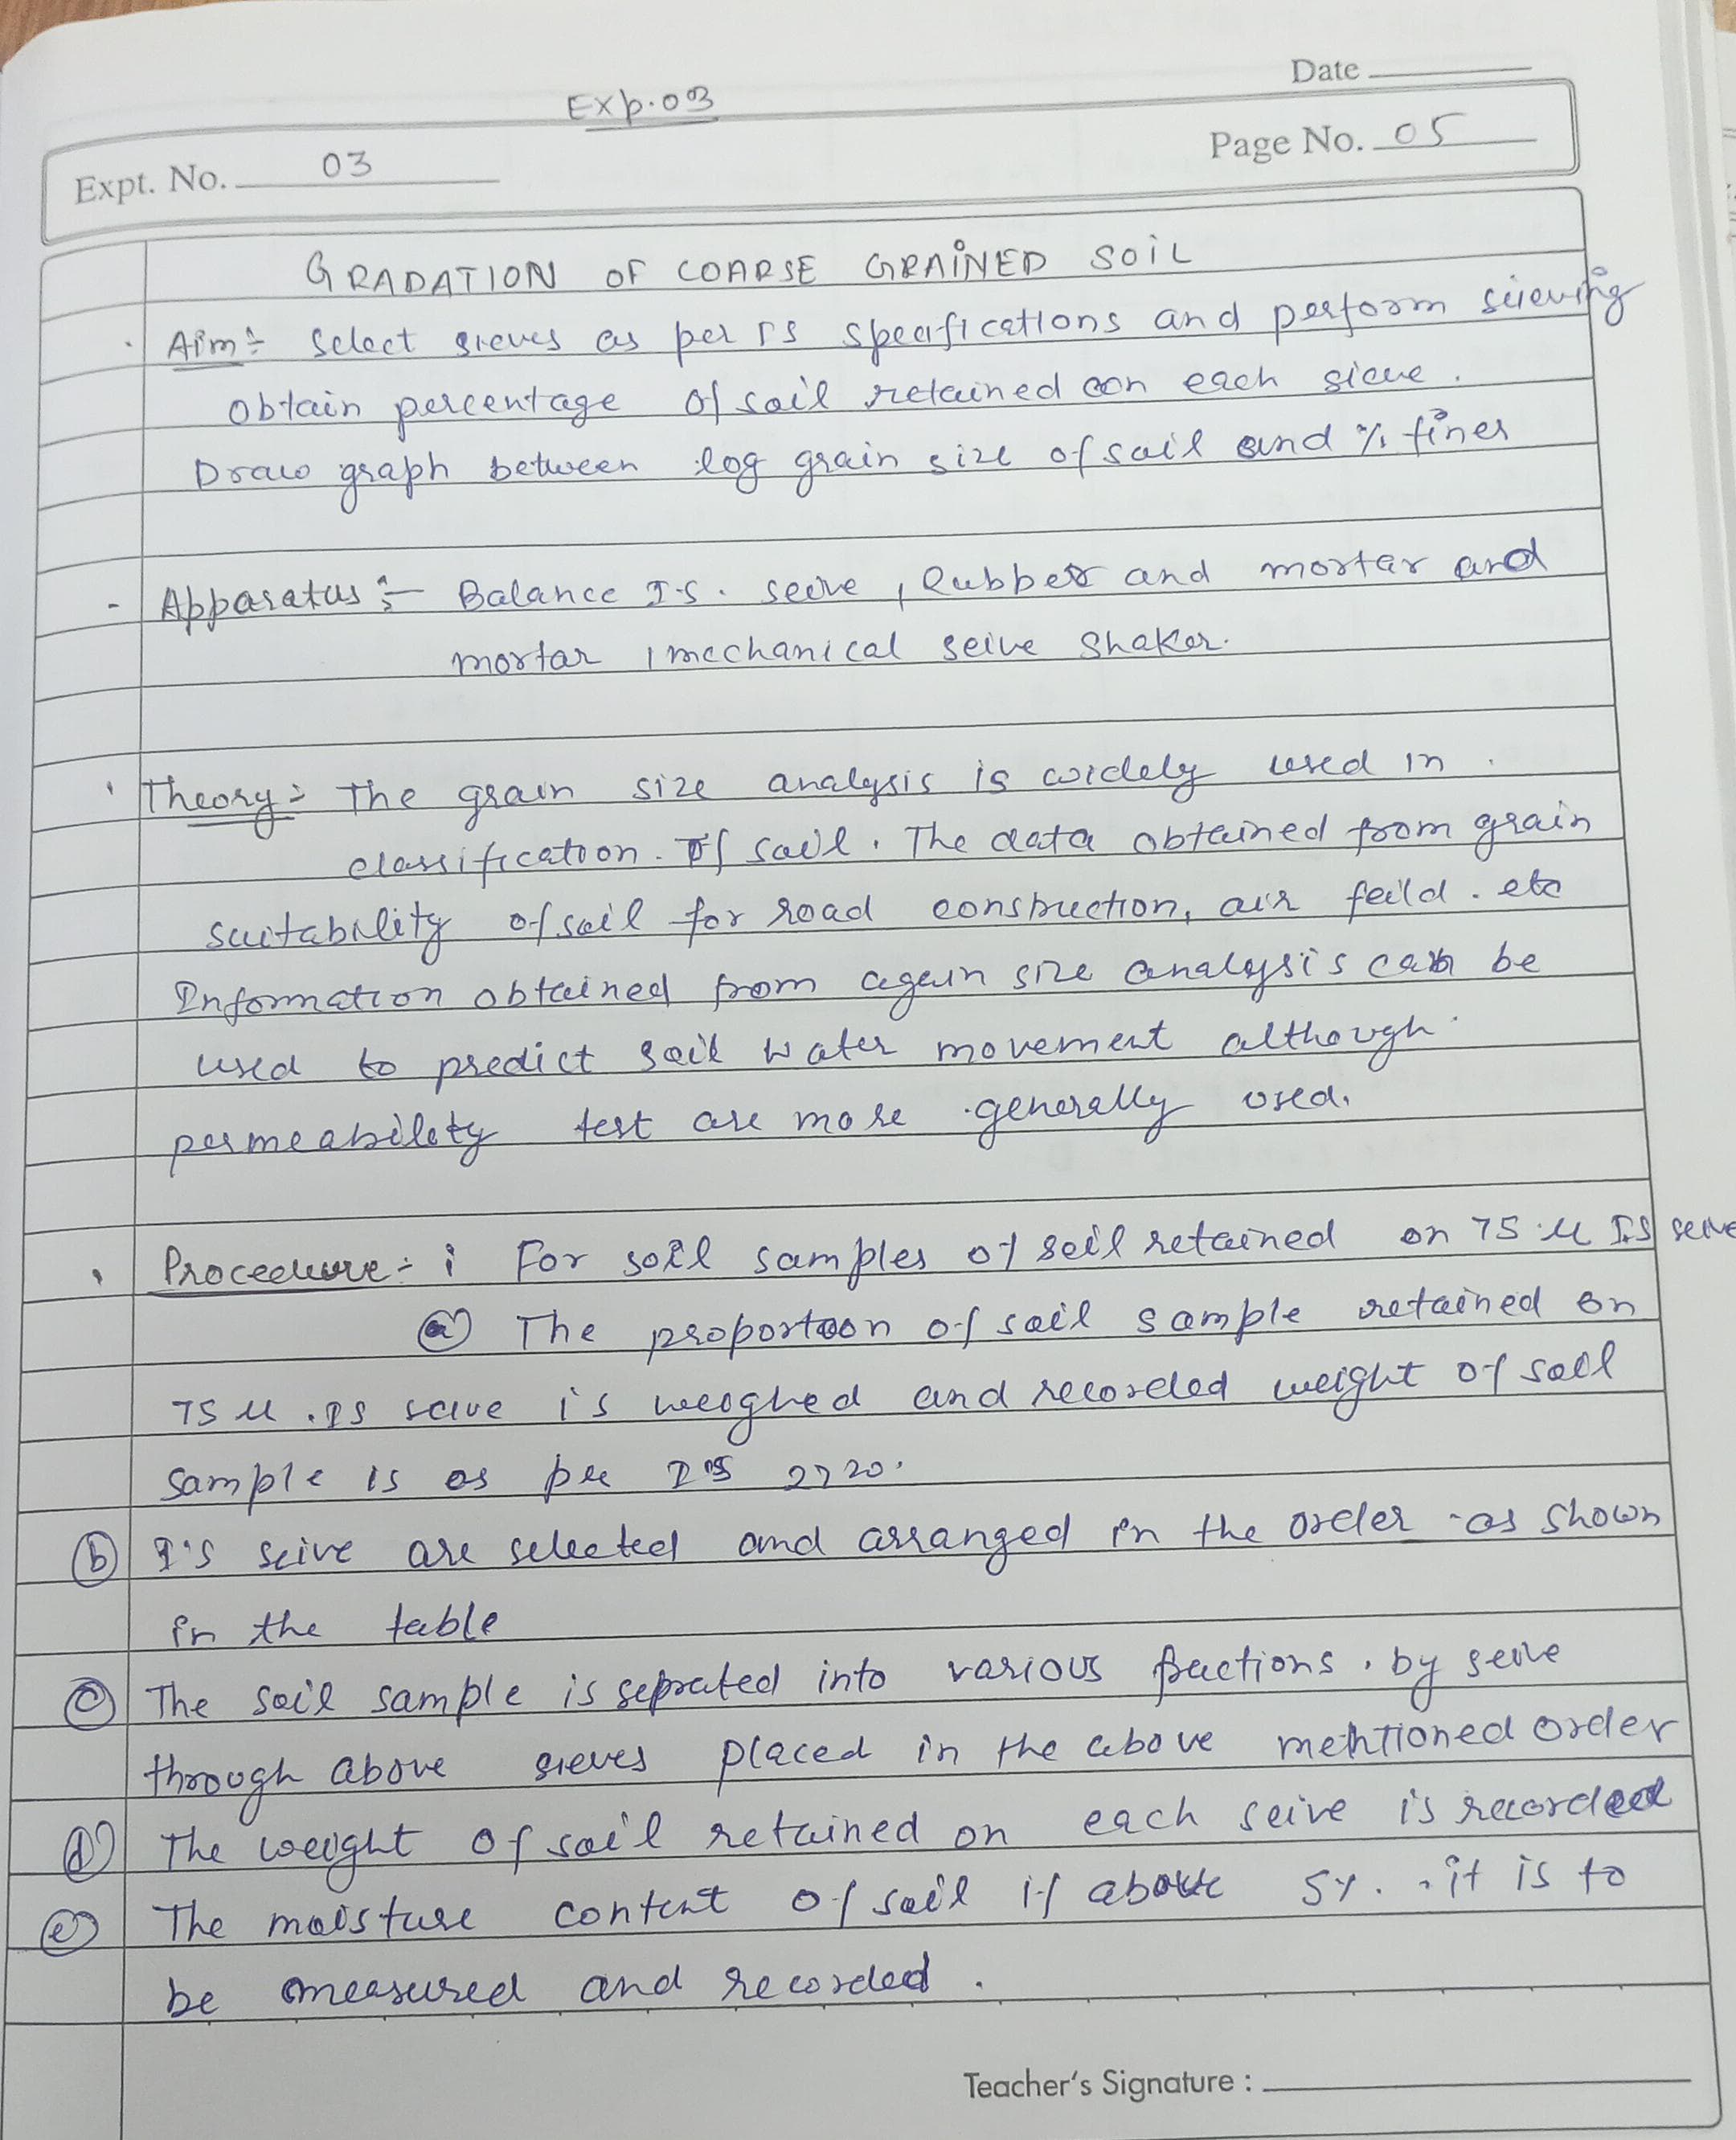 Date
Exp.03
Expt. No. 03
Page No. 05
GRADATION OF COARSE GRAINED SOIL
Aim:- Select sieves as per IS specifications and perform sieving
obtain percentage of soil retained on each sieve.
Draw graph between log grain size of soil and % finer
Apparatus:- Balance I.S. seive, Rubber and mortar and
mortar, mechanical seive shaker.
Theory:- The grain size analysis is widely used in
classification. of soil. The data obtained from grain
suitability of soil for road construction, air feild. etc
Information obtained from again size analysis can be
used to predict soil water movement although
permeability test are more generally used.
Procedure:- i For soil samples of soil retained on 75 μ I.S seive
(a) The proportoon of soil sample retained on
75 μ .IS seive is weoghed and recorded weight of soil
sample is as per I.S 2720.
(b) I.S seive are selected and arranged in the order as shown
in the table
(c) The soil sample is seprated into various fractions. by seive
through above sieves placed in the above mentioned order
(d) The weight of soil retained on each seive is recorded
(e) The moisture content of soil if above 5%. it is to
be measured and recorded.
Teacher's Signature :